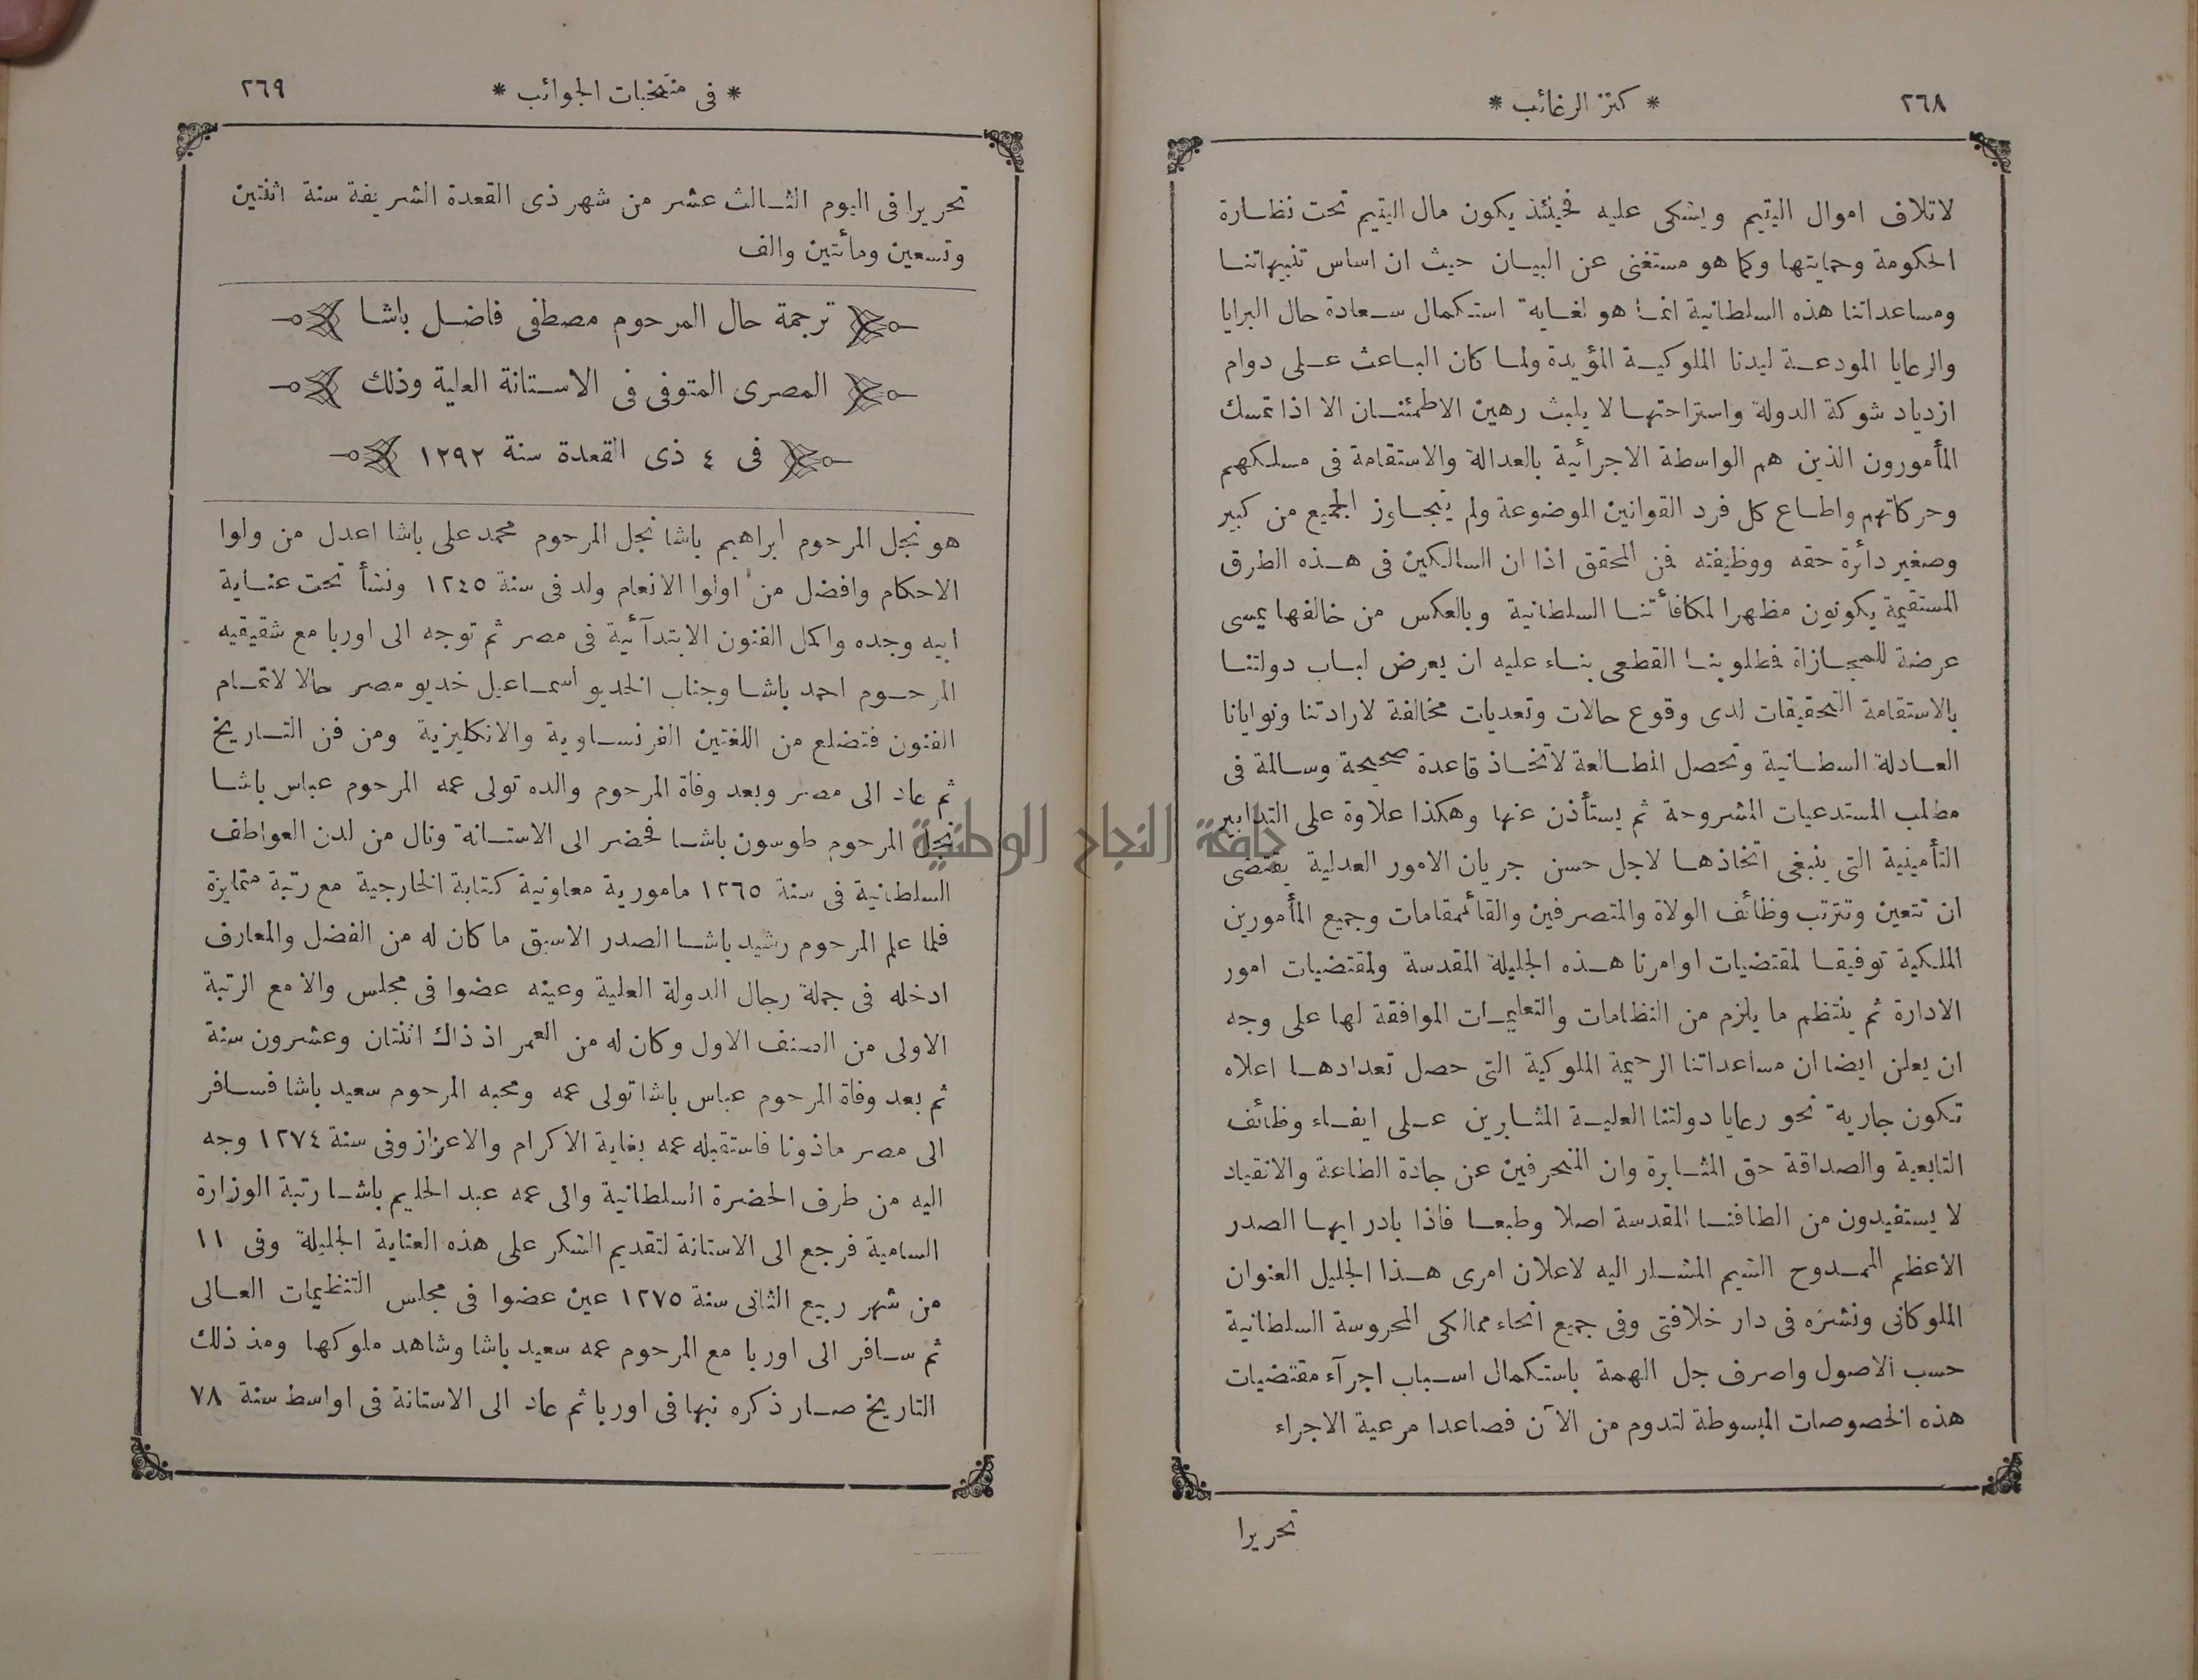 ٢٦٨
* كنز الرغائب *
لاتلاف اموال اليتيم ويشكى عليه فحينئذ يكون مال اليتيم تحت نظارة
الحكومة وحمايتها وكما هو مستغنى عن البيان حيث ان اساس تنبيهاتنا
ومساعداتنا هذه السلطانية انما هو لغاية استكمال سعادة حال البرايا
والرعايا المودعة ليدنا الملوكية المؤيدة ولما كان الباعث على دوام
ازدياد شوكة الدولة واستراحتها لا يلبث رهين الاطمئنان الا اذا تمسك
المأمورون الذين هم الواسطة الاجرائية بالعدالة والاستقامة فى مسلكهم
وحركاتهم واطاع كل فرد القوانين الموضوعة ولم يتجاوز الجميع من كبير
وصغير دائرة حقه ووظيفته فمن المحقق اذا ان السالكين فى هذه الطرق
المستقيمة يكونون مظهرا لمكافأتنا السلطانية وبالعكس من خالفها يمسى
عرضة للمجازاة فمطلوبنا القطعى بناء عليه ان يعرض لباب دولتنا
بالاستقامة التحقيقات لدى وقوع حالات وتعديات مخالفة لارادتنا ونوايانا
العادلة السطانية وتحصل المطالعة لاتخاذ قاعدة صحيحة وسالمة فى
مطلب المستدعيات المشروحة ثم يستأذن عنها وهكذا علاوة على التدابير
التأمينية التى ينبغى اتخاذها لاجل حسن جريان الامور العدلية يقتضى
ان تتعين وتترتب وظائف الولاة والمتصرفين والقائمقامات وجميع المأمورين
الملكية توفيقا لمقتضيات اوامرنا هذه الجليلة المقدسة ولمقتضيات امور
الادارة ثم ينتظم ما يلزم من النظامات والتعليمات الموافقة لها على وجه
ان يعلن ايضا ان مساعداتنا الرحيمة الملوكية التى حصل تعدادها اعلاه
تكون جارية نحو رعايا دولتنا العلية المثابرين على ايفاء وظائف
التابعية والصداقة حق المثابرة وان المنحرفين عن جادة الطاعة والانقياد
لا يستفيدون من الطافنا المقدسة اصلا وطبعا فاذا بادر ايها الصدر
الاعظم الممدوح الشيم المشار اليه لاعلان امرى هذا الجليل العنوان
الملوكانى ونشره فى دار خلافتى وفى جميع انحاء ممالكى المحروسة السلطانية
حسب الاصول واصرف جل الهمة باستكمال اسباب اجرآء مقتضيات
هذه الخصوصات المبسوطة لتدوم من الآن فصاعدا مرعية الاجراء
تحريرا
* فى منتخبات الجوائب *
٢٦٩
تحريرا فى اليوم الثالث عشر من شهر ذى القعدة الشريفة سنة اثنتين
وتسعين ومأتين والف
ترجمة حال المرحوم مصطفى فاضل باشا
المصرى المتوفى فى الاستانة العلية وذلك
فى ٤ ذى القعدة سنة ١٢٩٢
هو نجل المرحوم ابراهيم باشا نجل المرحوم محمد على باشا اعدل من ولوا
الاحكام وافضل من اولوا الانعام ولد فى سنة ١٢٤٥ ونشأ تحت عناية
ابيه وجده واكمل الفنون الابتدآئية فى مصر ثم توجه الى اوربا مع شقيقيه
المرحوم احمد باشا وجناب الخديو اسماعيل خديو مصر حالا لاتمام
الفنون فتضلع من اللغتين الفرنساوية والانكليزية ومن فن التاريخ
ثم عاد الى مصر وبعد وفاة المرحوم والده تولى عمه المرحوم عباس باشا
نجل المرحوم طوسون باشا فحضر الى الاستانة ونال من لدن العواطف
السلطانية فى سنة ١٢٦٥ مامورية معاونية كتابة الخارجية مع رتبة متمايزة
فلما علم المرحوم رشيد باشا الصدر الاسبق ما كان له من الفضل والمعارف
ادخله فى جملة رجال الدولة العلية وعينه عضوا فى مجلس والا مع الرتبة
الاولى من الصنف الاول وكان له من العمر اذ ذاك اثنتان وعشرون سنة
ثم بعد وفاة المرحوم عباس باشا تولى عمه ومحبه المرحوم سعيد باشا فسافر
الى مصر ماذونا فاستقبله عمه بغاية الاكرام والاعزاز وفى سنة ١٢٧٤ وجه
اليه من طرف الحضرة السلطانية والى عمه عبد الحليم باشا رتبة الوزارة
السامية فرجع الى الاستانة لتقديم الشكر على هذه العناية الجليلة وفى ١١
من شهر ربيع الثانى سنة ١٢٧٥ عين عضوا فى مجلس التنظيمات العالى
ثم سافر الى اوربا مع المرحوم عمه سعيد باشا وشاهد ملوكها ومذ ذلك
التاريخ صار ذكره نبها فى اوربا ثم عاد الى الاستانة فى اواسط سنة ٧٨
جامعة النجاح الوطنية